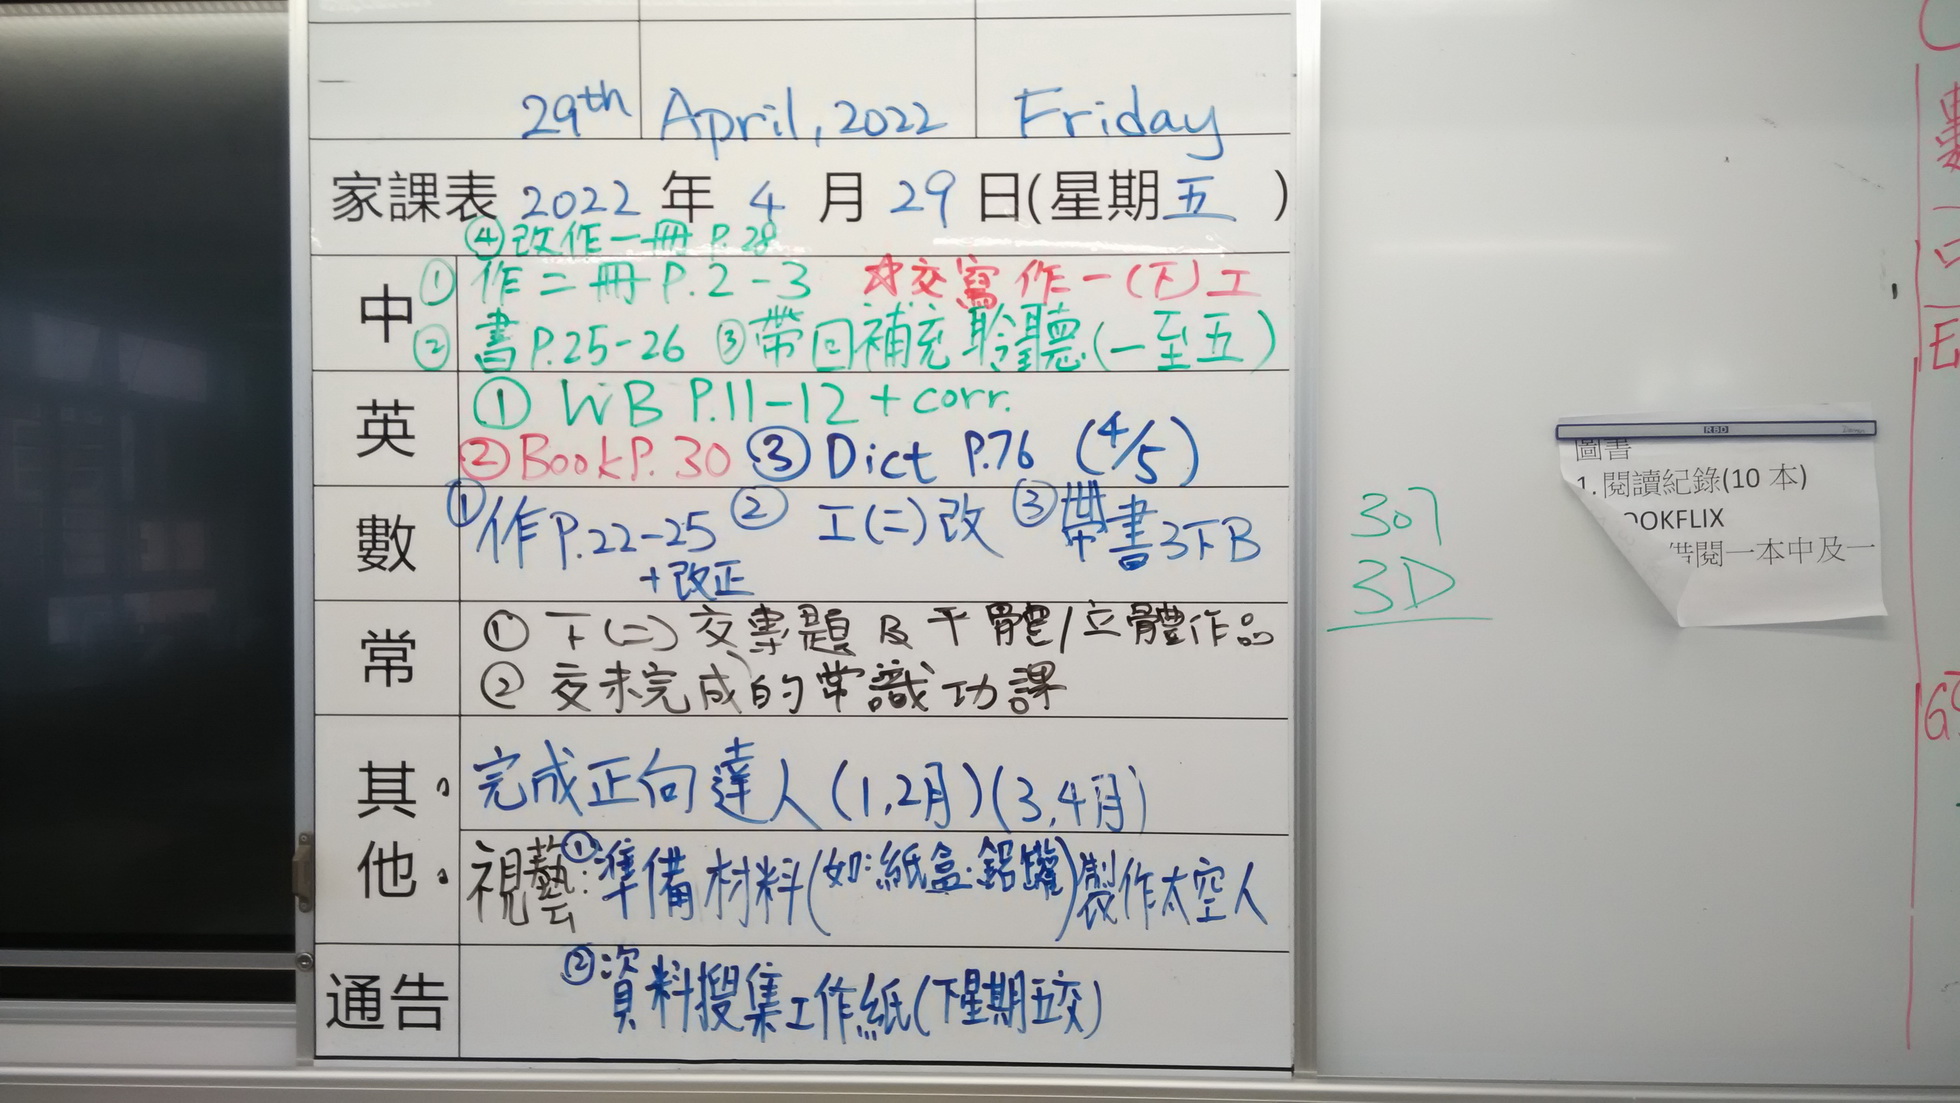 29th April, 2022 Friday
家課表 2022 年 4 月 29 日(星期五 )
④改作一冊 P.28
中
① 作二冊 P.2-3 ☆交寫作一(下)工
② 書P.25-26 ③帶回補充聆聽(一至五)
英
① WB P.11-12 + corr.
②Book P. 30 ③ Dict P.76 (4/5)
數
①作P.22-25 ② 工(二)改 ③帶書3下B
+改正
常
① 下(二)交專題及平體/立體作品
② 交未完成的常識功課
其他
完成正向達人(1,2月)(3,4月)
視藝:①準備材料(如:紙盒.鋁罐)製作太空人
通告
②資料搜集工作紙(下星期五交)
307
3D
RBD
圖書
1.閱讀紀錄(10 本)
OOKFLIX
借閱一本中及一